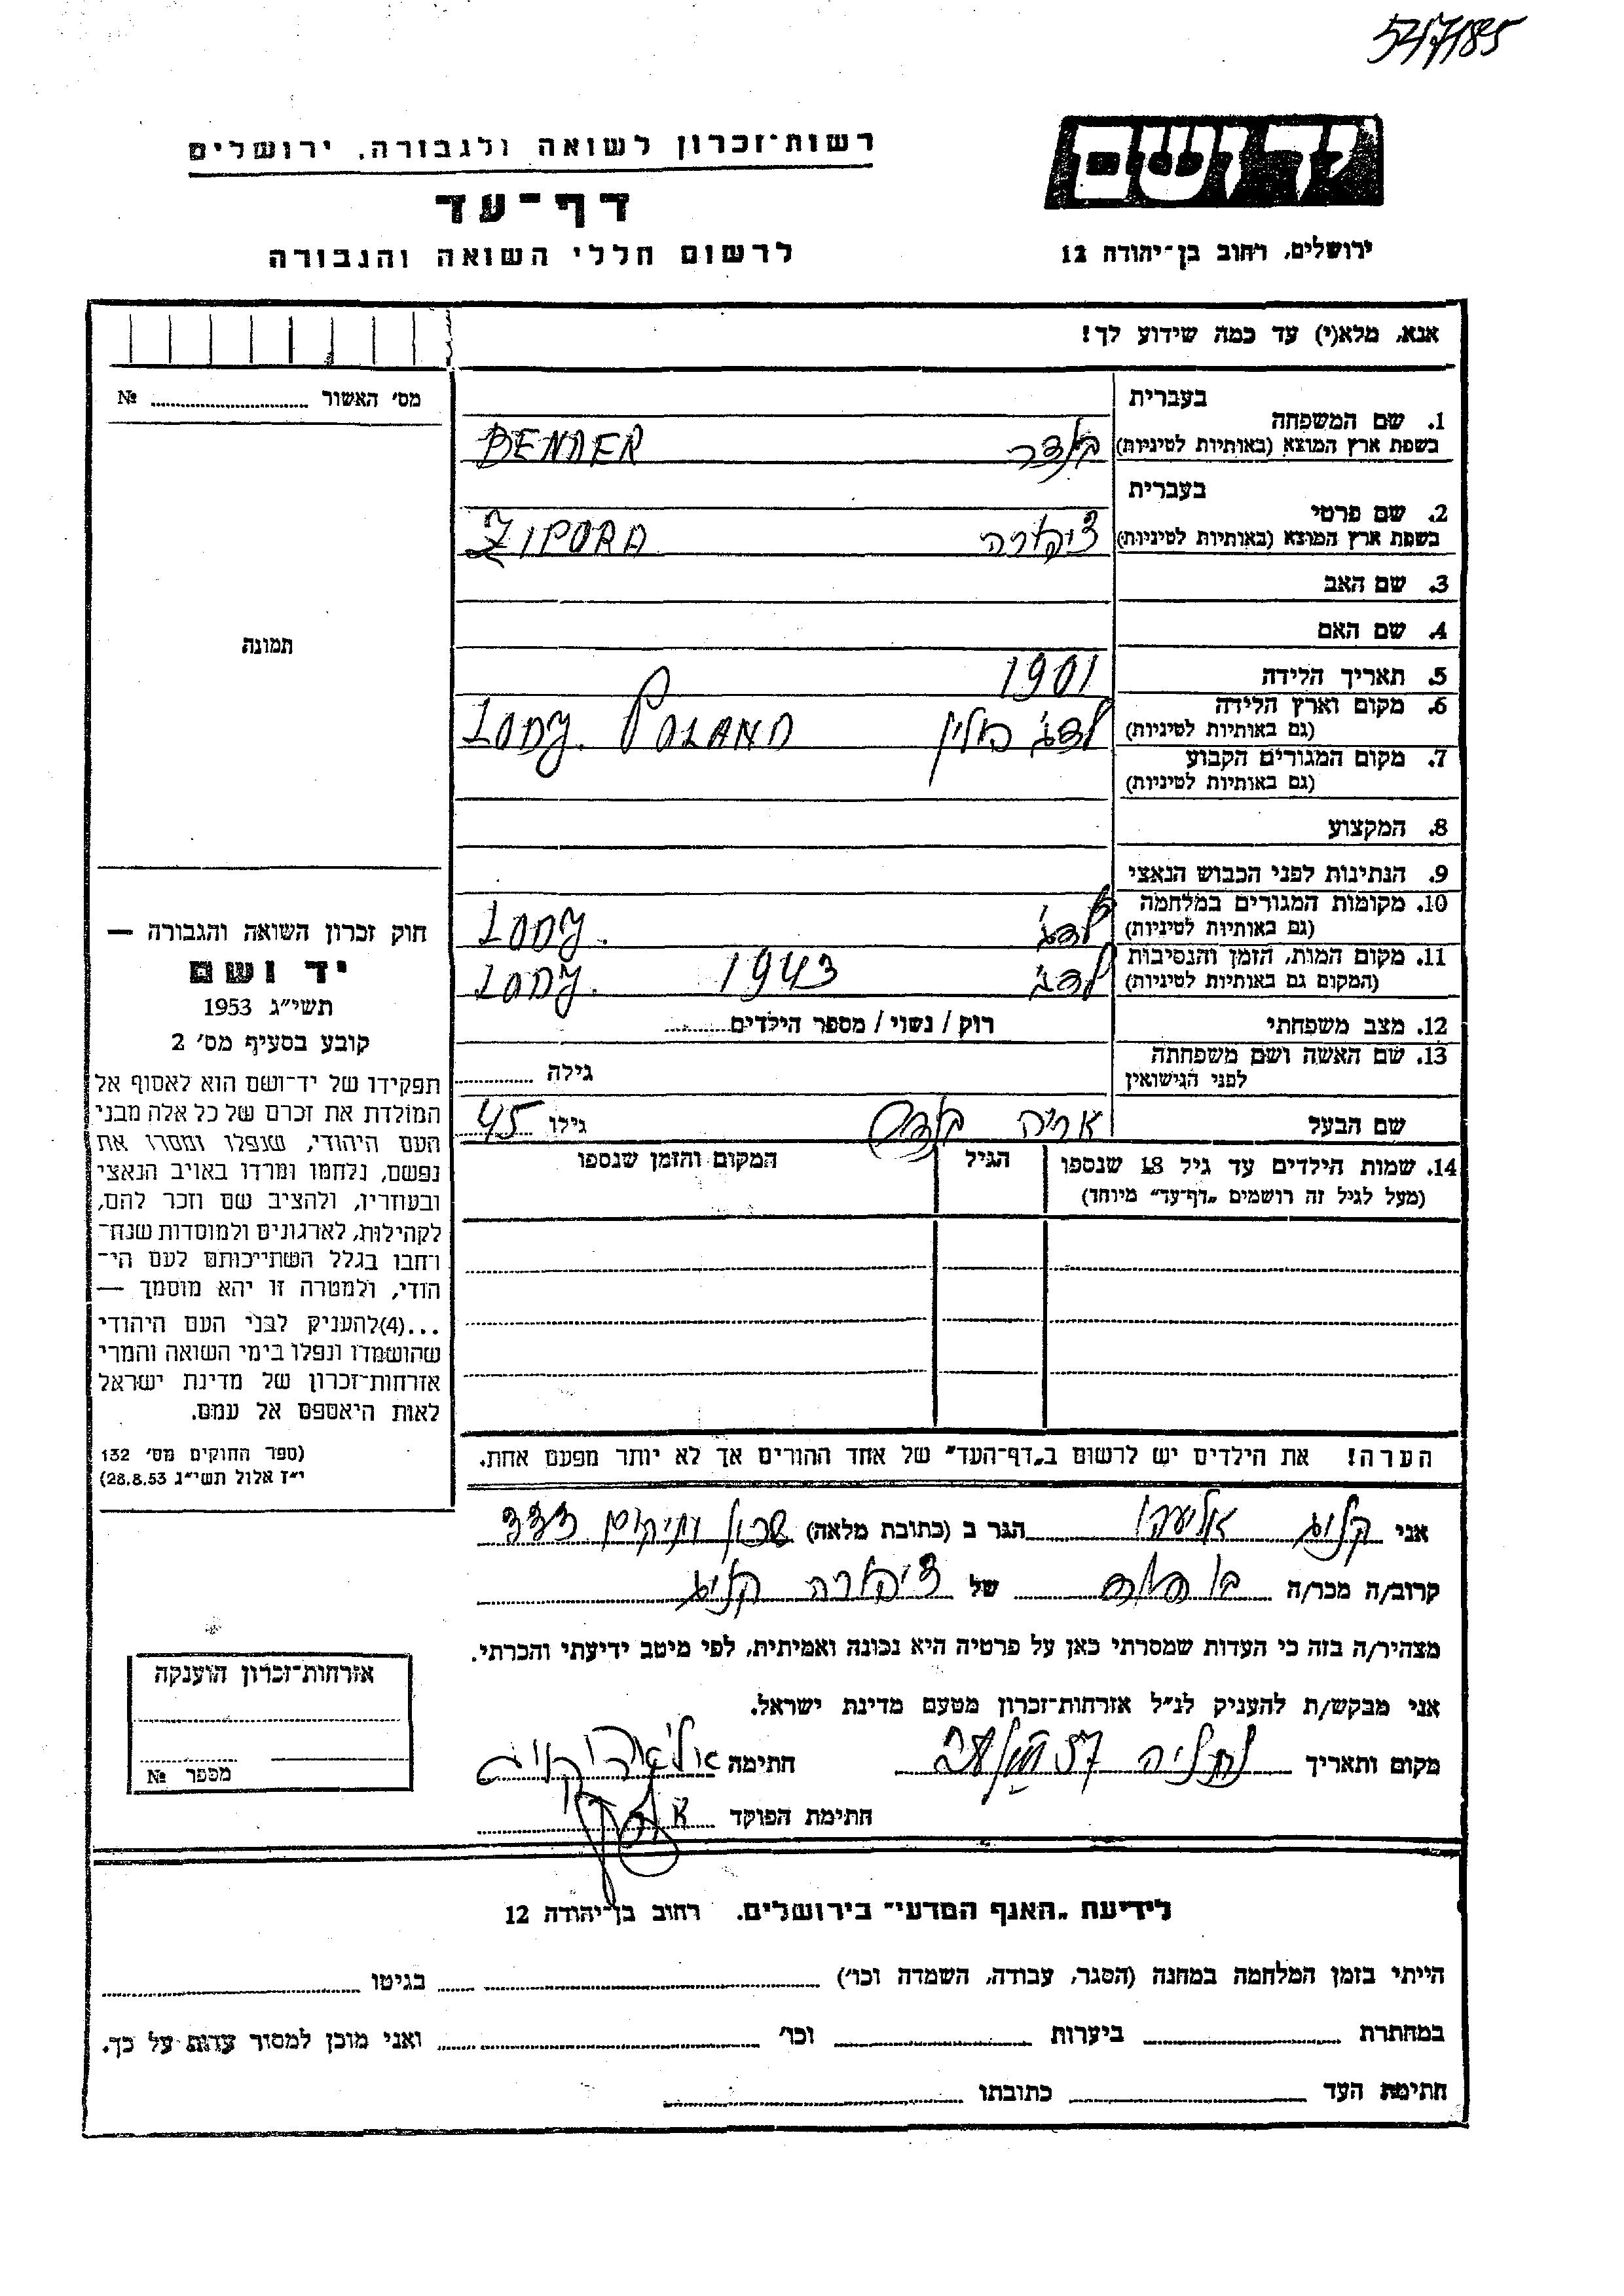 54/7185
יד ושם
רשות־זכרון לשואה ולגבורה, ירושלים
דף־עד
לרשום חללי השואה והגבורה
ירושלים, רחוב בן־יהודה 12
אנא, מלא(י) עד כמה שידוע לך!
מס׳ האשור № 
תמונה
חוק זכרון השואה והגבורה —
יד ושם
תשי״ג 1953
קובע בסעיף מס׳ 2
תפקידו של יד־ושם הוא לאסוף אל
המולדת את זכרם של כל אלה מבני
העם היהודי, שנפלו ומסרו את
נפשם, נלחמו ומרדו באויב הנאצי
ובעוזריו, ולהציב שם וזכר להם,
לקהילות, לארגונים ולמוסדות שנח־
רחבו בגלל השתייכותם לעם הי־
הודי, ולמטרה זו יהא מוסמך —
...(4)להעניק לבני העם היהודי
שהושמדו ונפלו בימי השואה והמרי
אזרחות־זכרון של מדינת ישראל
לאות היאספם אל עמם.
(ספר החוקים מס׳ 132
י״ז אלול תשי״ג 28.8.53)
בעברית
1. שם המשפחה
בשפת ארץ המוצא (באותיות לטיניות) בנדר BENDER
בעברית
2. שם פרטי
בשפת ארץ המוצא (באותיות לטיניות) ציפורה ZIPORA
3. שם האב
4. שם האם
5. תאריך הלידה 1901
6. מקום וארץ הלידה
(גם באותיות לטיניות) לודג׳ פולין LODZ. POLAND
7. מקום המגורים הקבוע
(גם באותיות לטיניות)
8. המקצוע
9. הנתינות לפני הכבוש הנאצי
10. מקומות המגורים במלחמה
(גם באותיות לטיניות) לודג׳ LODZ.
11. מקום המות, הזמן והנסיבות
(המקום גם באותיות לטיניות) לודג׳ 1943 LODZ.
12. מצב משפחתי רוק / נשוי / מספר הילדים
13. שם האשה ושם משפחתה
לפני הנישואין גילה
שם הבעל אריה בנדר גילו 45
14. שמות הילדים עד גיל 18 שנספו הגיל המקום והזמן שנספו
(מעל לגיל זה רושמים „דף־עד״ מיוחד)
הערה! את הילדים יש לרשום ב„דף־העד״ של אחד ההורים אך לא יותר מפעם אחת.
אני אליעהו הגר ב (כתובת מלאה) שכון ותיקים
קרוב/ה מכר/ה של ציפורה
מצהיר/ה בזה כי העדות שמסרתי כאן על פרטיה היא נכונה ואמיתית, לפי מיטב ידיעתי והכרתי.
אני מבקש/ת להעניק לנ״ל אזרחות־זכרון מטעם מדינת ישראל.
מקום ותאריך נתניה 57 חתימה
חתימת הפוקד
אזרחות־זכרון הוענקה
מספר №
לידיעת „האגף המדעי״ בירושלים. רחוב בן־יהודה 12
הייתי בזמן המלחמה במחנה (הסגר, עבודה, השמדה וכו׳) בגיטו
במחתרת ביערות וכו׳ ואני מוכן למסור עדות על כך.
חתימת העד כתובתו